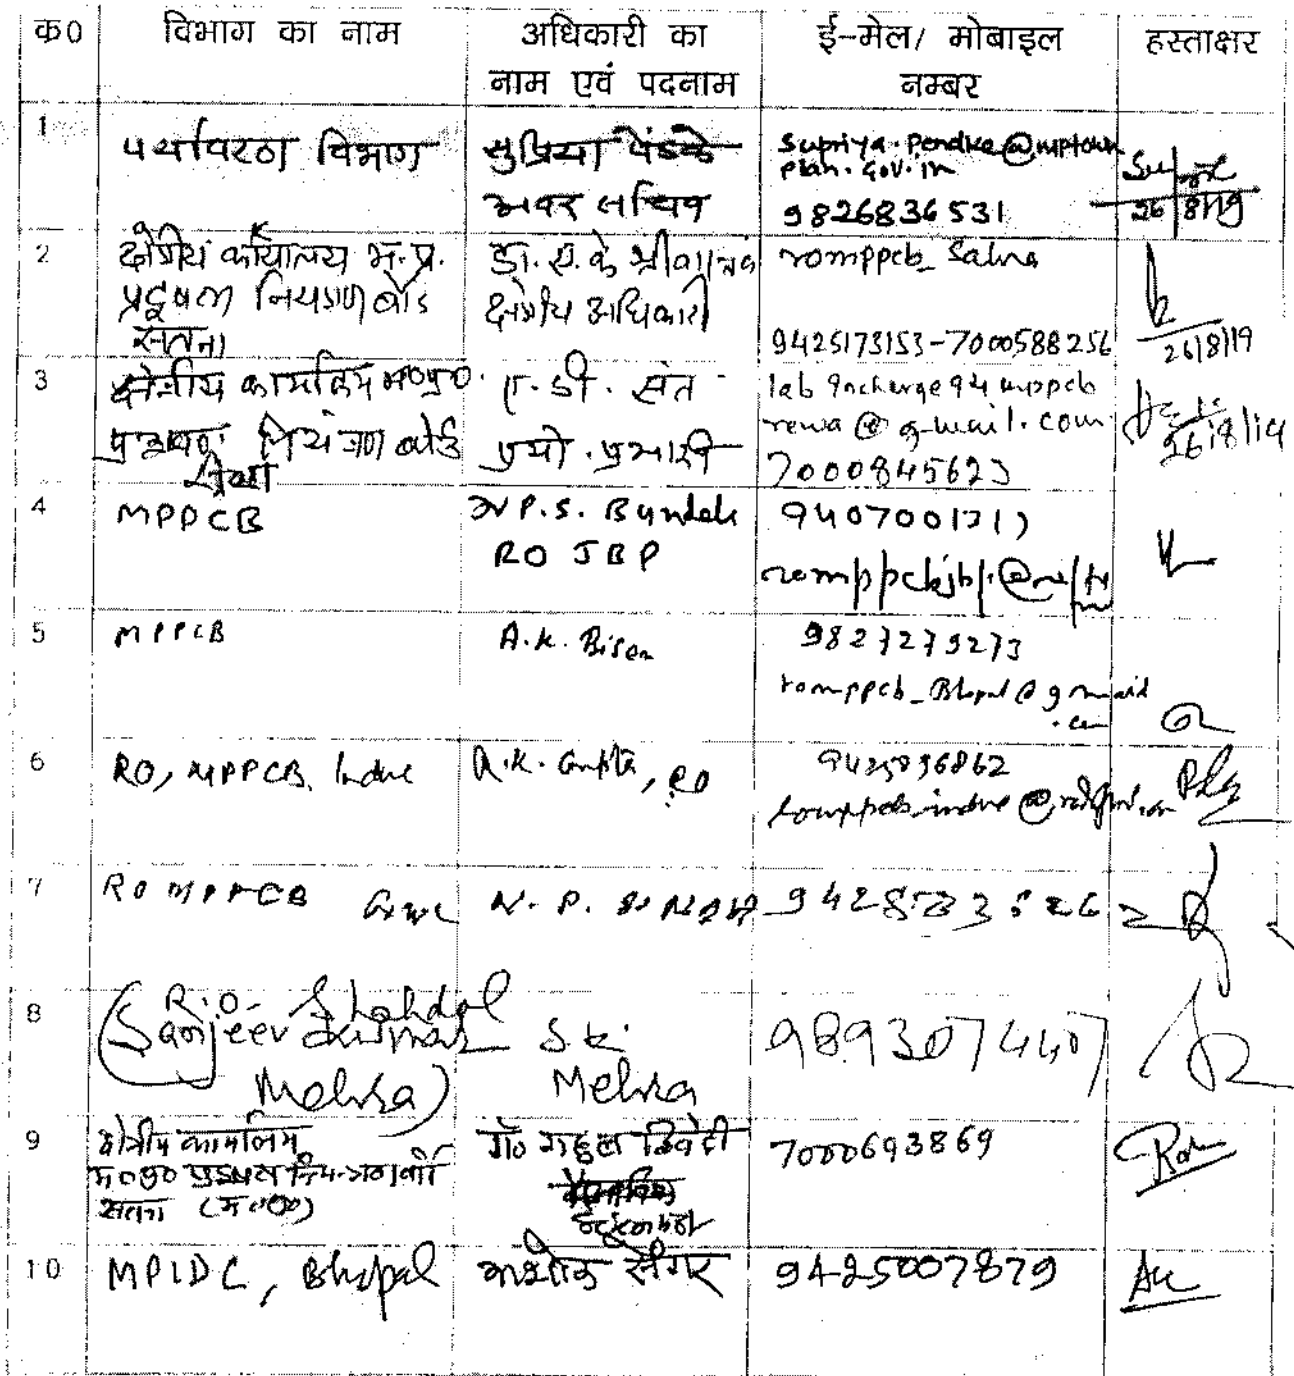 क0 विभाग का नाम अधिकारी का नाम एवं पदनाम ई-मेल/ मोबाइल नम्बर हस्ताक्षर
1 पर्यावरण विभाग सुप्रिया पेंडके
अवर सचिव
Supriya.Pendke@mptown
plan.gov.in
9826836531
26/8/19
2 क्षेत्रीय कार्यालय म.प्र.
प्रदूषण नियंत्रण बोर्ड
सतना
डा. एस. के श्रीवास्तव
क्षेत्रीय अधिकारी
romppcb_Satna
9425173153-7000588256
26/8/19
3 क्षेत्रीय कार्यालय म०प्र०
प्रदूषण नियंत्रण बोर्ड
रीवा
ए. डी. संत
प्रयो. प्रभारी
rewa@g-mail.com
7000845623
26/8/19
4 MPPCB
P.S. Bundela
RO JBP
5 MPPCB A.K. Bisen
9827279273
romppcb_Bhopal@gmail
.com
6 RO, MPPCB, Indore
R.K. Gupta, RO
7 RO MPPCB
N. P. SINGH
8 R.O. Shahdol
(Sanjeev Kumar
Mehra)
S.K.
Mehra
9893074407
9 क्षेत्रीय कार्यालय
म०प्र० प्रदूषण नियंत्रण बोर्ड
सतना (म०प्र०)
डॉ० राहुल द्विवेदी
7000693869
10 MPIDC, Bhopal
अशोक सेंगर
9425007879